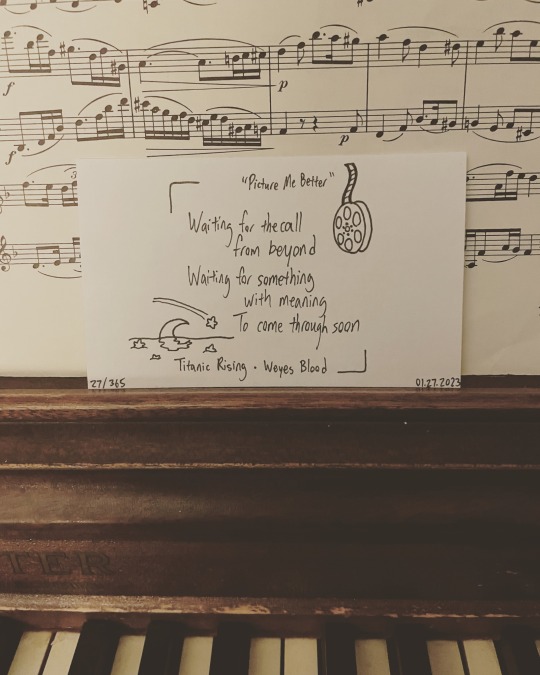 f
p
f
p
3
"Picture Me Better"
Waiting for the call
from beyond
Waiting for something
with meaning
To come through soon
Titanic Rising · Weyes Blood
27/365
01.27.2023